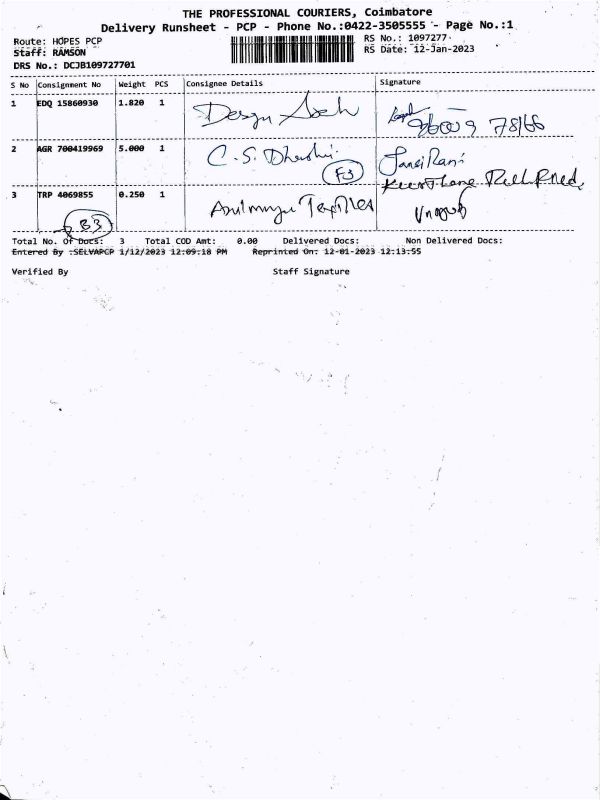 THE PROFESSIONAL COURIERS, Coimbatore
Delivery Runsheet - PCP - Phone No.:0422-3505555 - Page No.:1
Route: HOPES PCP
RS No.: 1097277
Staff: RAMSON
RS Date: 12-Jan-2023
DRS No.: DCJB109727701
S No Consignment No Weight PCS Consignee Details Signature
1 EDQ 15860930 1.820 1 Design
2 AGR 700419969 5.000 1 C.S. Dharshini F3 JansiRani
3 TRP 4069855 0.250 1
B3
Total No. Of Docs: 3 Total COD Amt: 0.00 Delivered Docs: Non Delivered Docs:
Entered By :SELVAPCP 1/12/2023 12:09:18 PM Reprinted On: 12-01-2023 12:13:55
Verified By Staff Signature